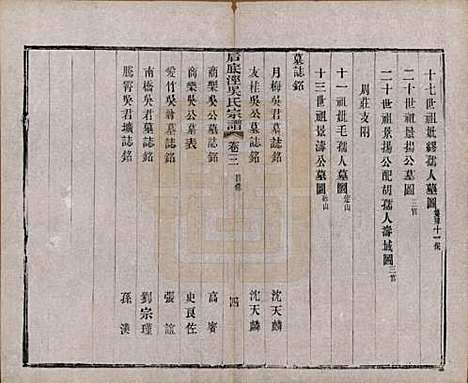 十七世祖妣繆孺人墓圖
二十世祖景揚公墓圖 三官
二十世祖景揚公配胡孺人壽域圖 三官
周莊支附
十一祖妣毛孺人墓圖
十三世祖景濤公墓圖
墓誌銘
月梅吳君墓誌銘 沈天麟
友桂吳公墓誌銘 沈天麟
后底涇吳氏宗譜 卷三 目錄 四
商樂吳公墓誌銘 高賓
商樂吳公墓表 史良佐
愛竹吳君墓誌銘 張誼
南橋吳君墓誌銘 劉宗瑾
騰霄吳君壙誌銘 孫漢